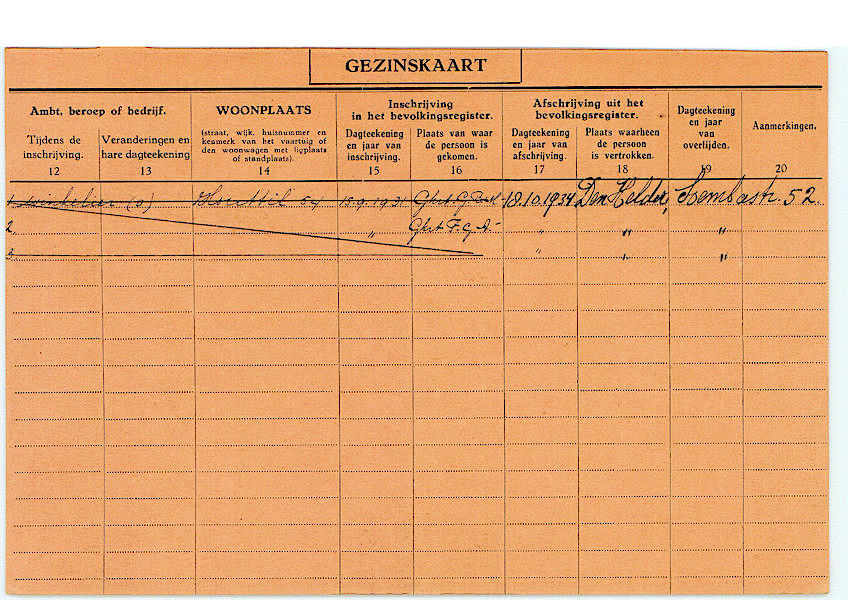 GEZINSKAART
Ambt, beroep of bedrijf.
Tijdens de inschrijving.
12
Veranderingen en hare dagteekening
13
WOONPLAATS
(straat, wijk, huisnummer en
kenmerk van het vaartuig of
den woonwagen met ligplaats
of standplaats).
14
Inschrijving
in het bevolkingsregister.
Dagteekening
en jaar van
inschrijving.
15
Plaats van waar
de persoon is
gekomen.
16
Afschrijving uit het
bevolkingsregister.
Dagteekening
en jaar van
afschrijving.
17
Plaats waarheen
de persoon
is vertrokken.
18
Dagteekening
en jaar
van
overlijden.
19
Aanmerkingen.
20
1. winkelier (o) Houttil 54 15.9.1931 Ghrt. G. 18.10.1934 Den Helder, 52.
2. " Ghrt. F. G. A. " " "
3. " " "